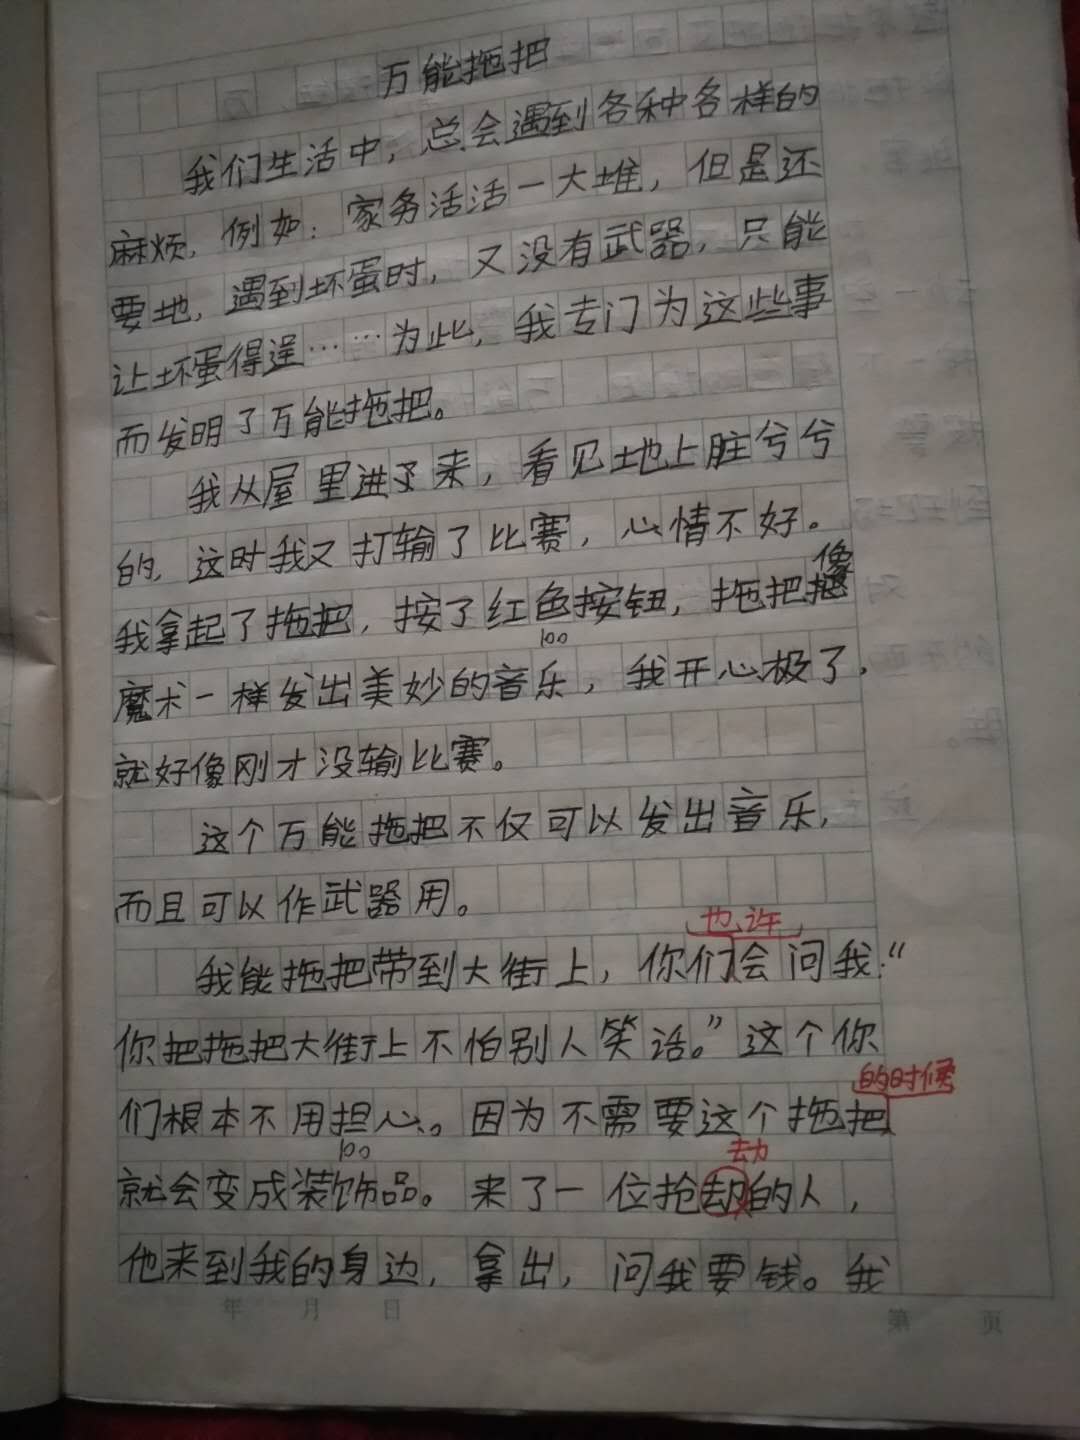 万能拖把
我们生活中，总会遇到各种各样的
麻烦，例如：家务活活一大堆，但是还
要地，遇到坏蛋时，又没有武器，只能
让坏蛋得逞……为此，我专门为这些事
而发明了万能拖把。
我从屋里进了来，看见地上脏兮兮
的，这时我又打输了比赛，心情不好。
像
我拿起了拖把，按了红色按钮，拖把
100
魔术一样发出美妙的音乐，我开心极了，
就好像刚才没输比赛。
这个万能拖把不仅可以发出音乐，
而且可以作武器用。
也许
我能拖把带到大街上，你们会问我：“
你把拖把大街上不怕别人笑话。”这个你
的时候
们根本不用担心。因为不需要这个拖把
100
劫
就会变成装饰品。来了一位抢却的人，
他来到我的身边，拿出，问我要钱。我
年 月 日 第 页